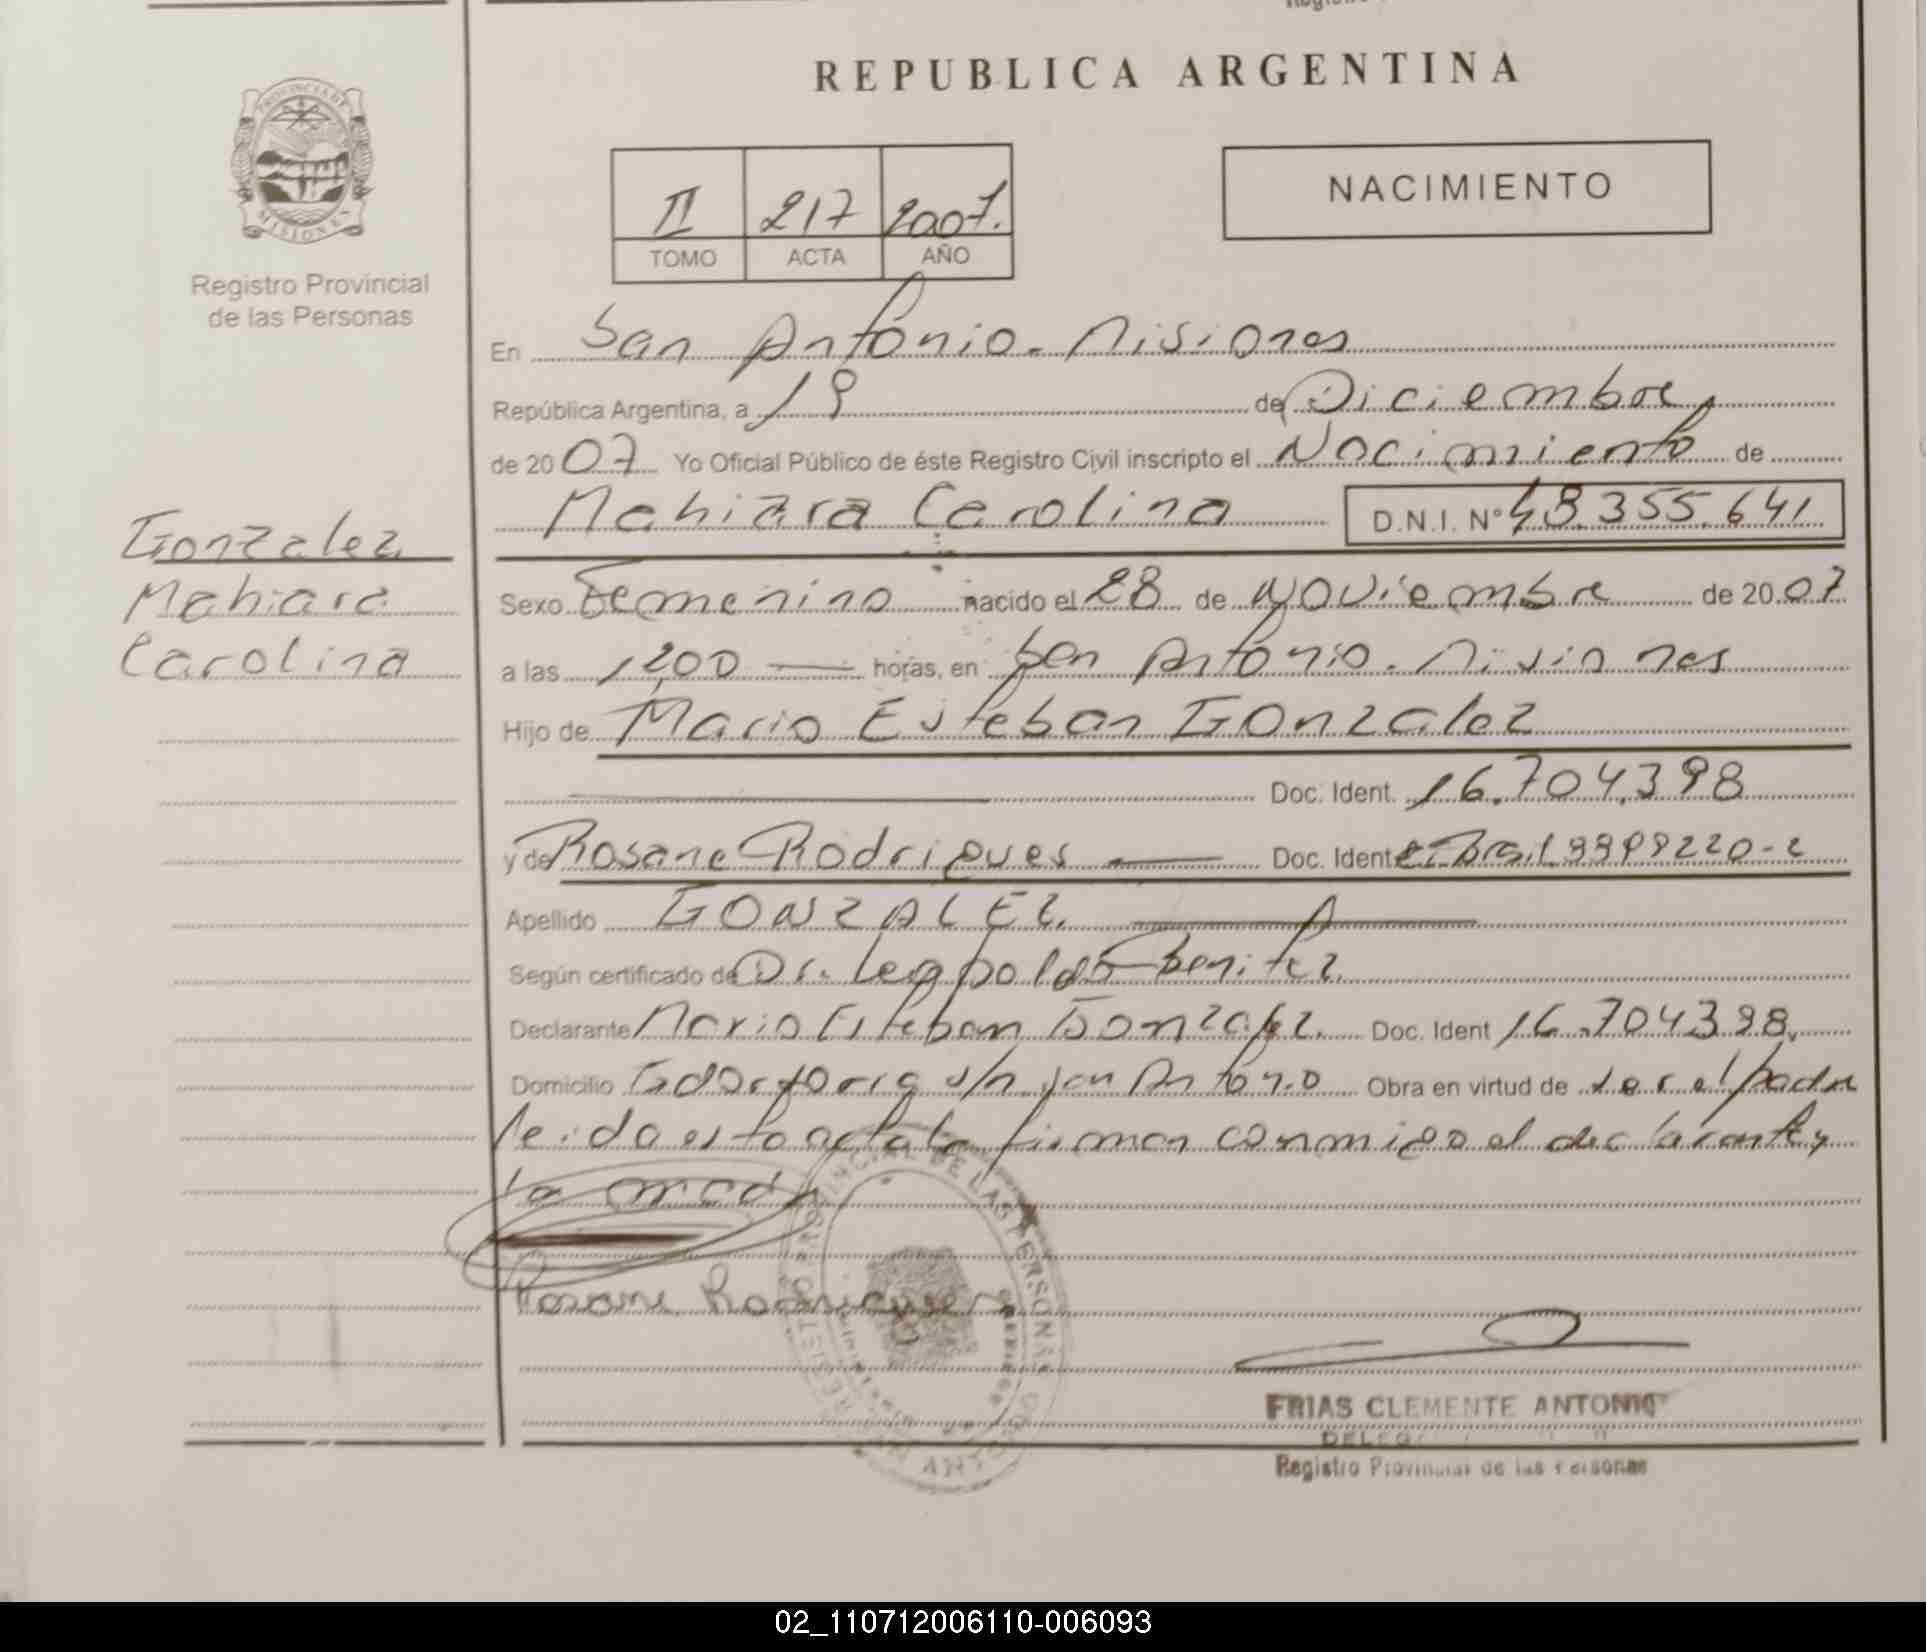 REPUBLICA ARGENTINA
PROVINCIA DE MISIONES
Registro Provincial
de las Personas
II 217 2007.
TOMO ACTA AÑO
NACIMIENTO
En San Antonio - Misiones
República Argentina, a 19 de Diciembre
de 2007 Yo Oficial Público de éste Registro Civil inscripto el Nacimiento de
Mahiara Carolina D.N.I. Nº 48.355.641
Gonzalez
Mahiara
Carolina
Sexo Femenino nacido el 28 de Noviembre de 2007
a las 1,200 horas, en San Antonio - Misiones
Hijo de Mario Esteban Gonzalez
Doc. Ident. 16.704.398
y de Rosane Rodrigues Doc. Ident
Apellido GONZALEZ.
Según certificado de Dr. Leopoldo Benitez
Declarante Mario Esteban Gonzalez. Doc. Ident 16.704398.
Domicilio s/n San Antonio Obra en virtud de ser el padre
leida esta acta la firman conmigo el declarante y
la madre
Rosane Rodrigues
REGISTRO PROVINCIAL DE LAS PERSONAS
FRIAS CLEMENTE ANTONIO
Registro Provincial de las Personas
02_110712006110-006093